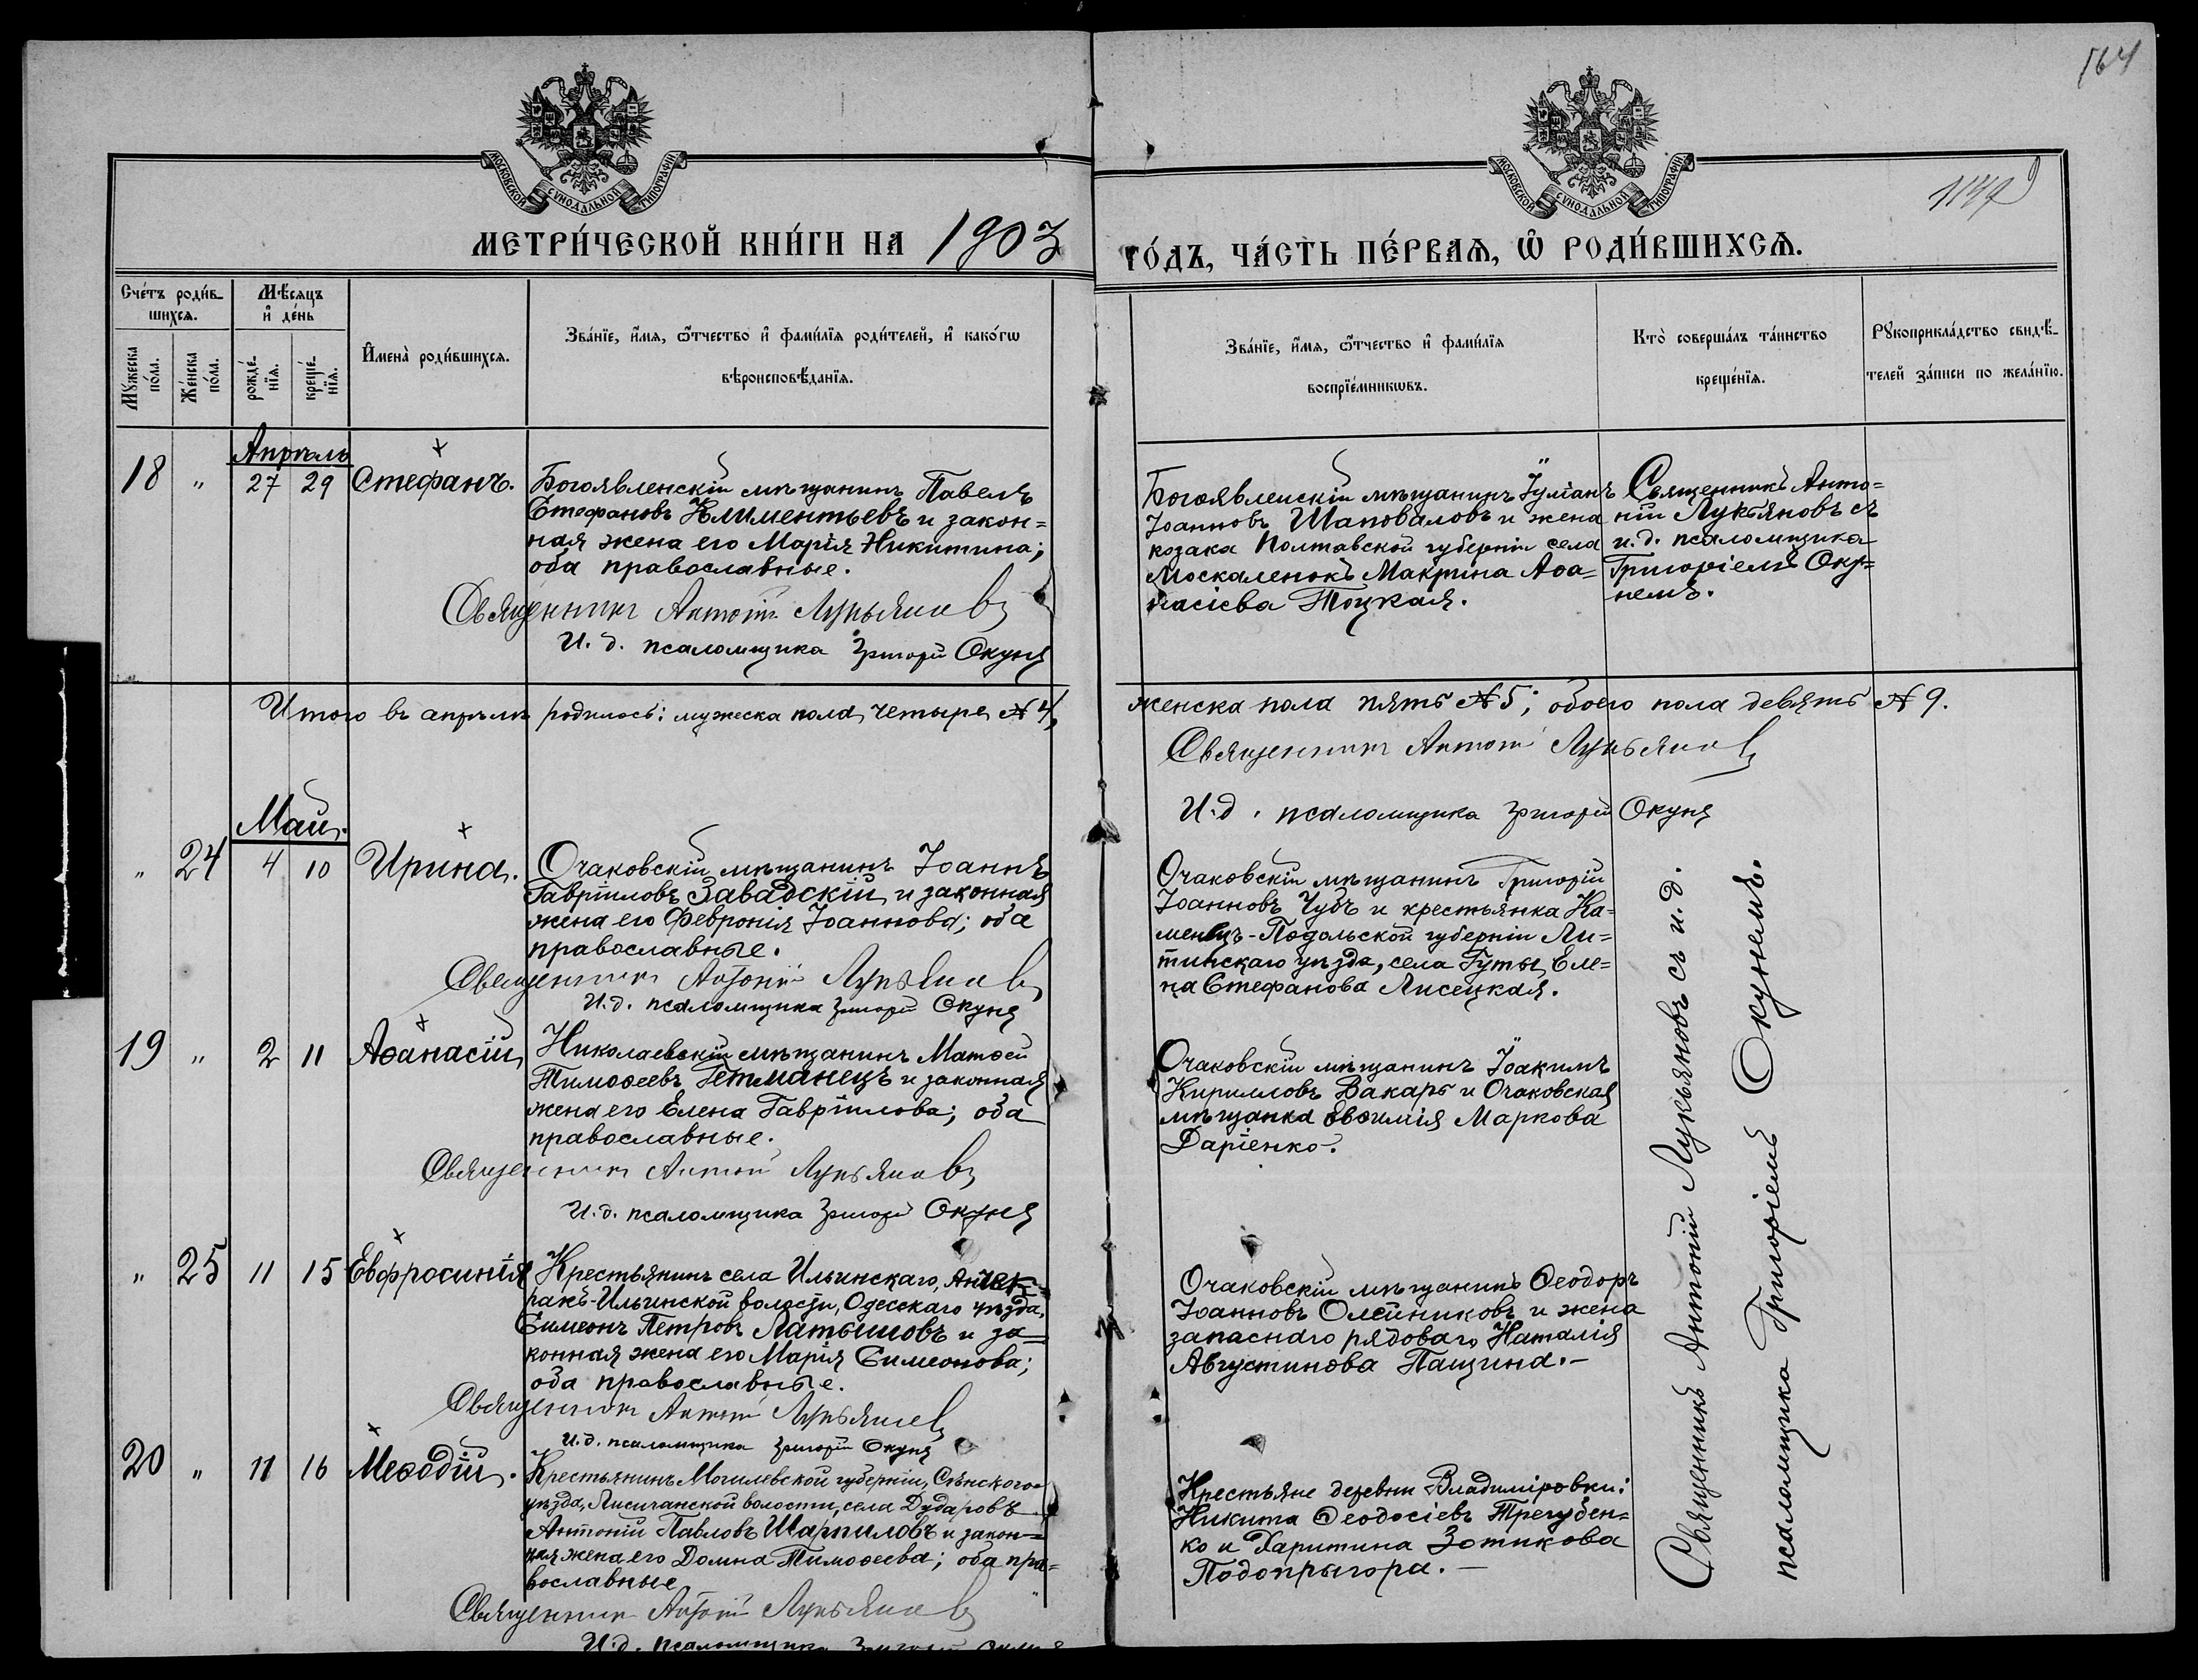 164
1147
МОСКОВСКОЙ СѴНОДАЛЬНОЙ ТИПОГРАФІИ
МОСКОВСКОЙ СѴНОДАЛЬНОЙ ТИПОГРАФІИ
МЕТРИ́ЧЕСКОЙ КНИ́ГИ НА 1903
ГО́ДЪ, ЧА́СТЬ ПЕ́РВАѦ, Ѡ҆ РОДИ́ВШИХСѦ.
Сче́тъ роди́в-
шихсѧ.
Мѣ́сѧцъ
и҆ де́нь
Мꙋжеска
по́ла.
Же́нска
по́ла.
рожде́-
нїѧ.
креще́-
нїѧ.
И҆мена̀ роди́вшихсѧ.
Зва́нїе, и҆́мѧ, ѻ҆́тчество и҆ фами́лїѧ роди́телей, и҆ како́гѡ
вѣроисповѣ́данїѧ.
Зва́нїе, и҆́мѧ, ѻ҆́тчество и҆ фами́лїѧ
воспрїе́мникѡвъ.
Кто̀ соверша́лъ та́инство
креще́нїѧ.
Рꙋкоприкла́дство свидѣ́-
телей за́писи по жела́нїю.
Апрѣль
18 " 27 29 Стефанъ.
Богоявленскій мѣщанинъ Павелъ
Стефановъ Климентьевъ и закон=
ная жена его Марія Никитина;
оба православные.
Священникъ Антоній Лукьяновъ
И. д. псаломщика Григорій Окунь
Богоявленскій мѣщанинъ Іуліанъ
Іоанновъ Шаповаловъ и жена
козака Полтавской губерніи села
Москаленокъ Макрина Аѳа=
насіева Тоцкая.
Священникъ Анто=
ній Лукьяновъ съ
и. д. псаломщика
Григоріемъ Оку=
немъ.
Итого въ апрѣлѣ родилось: мужеска пола четыре № 4,
женска пола пять № 5; обоего пола девять № 9.
Священникъ Антоній Лукьяновъ
И. д. псаломщика Григорій Окунь
Май.
" 24 4 10 Ирина.
Очаковскій мѣщанинъ Іоаннъ
Гавріиловъ Завадскій и законная
жена его Февронія Іоаннова; оба
православные.
Священникъ Антоній Лукьяновъ
И. д. псаломщика Григорій Окунь
Очаковскій мѣщанинъ Григорій
Іоанновъ Чубъ и крестьянка Ка=
менецъ-Подольской губерніи Ли=
тинскаго уѣзда, села Гуты, Еле=
на Стефанова Лисецкая.
19 " 2 11 Аѳанасій
Николаевскій мѣщанинъ Матѳей
Тимоѳеевъ Гетманецъ и законная
жена его Елена Гавріилова; оба
православные.
Священникъ Антоній Лукьяновъ
И. д. псаломщика Григорій Окунь
Очаковскій мѣщанинъ Іоакимъ
Кирилловъ Вакарь и Очаковская
мѣщанка Евѳимія Маркова
Даріенко.
" 25 11 15 Евфросинія
Крестьянинъ села Ильинскаго, Анчек=
ракъ-Ильинской волости, Одесскаго уѣзда,
Симеонъ Петровъ Латышовъ и за=
конная жена его Марія Симеонова;
оба православные.
Священникъ Антоній Лукьяновъ
И. д. псаломщика Григорій Окунь
Очаковскій мѣщанинъ Ѳеодоръ
Іоанновъ Олейниковъ и жена
запаснаго рядоваго Наталія
Августинова Пащина.-
20 " 11 16 Меѳодій.
Крестьянинъ Могилевской губерніи, Сѣнского
уѣзда, Лисичанской волости, села Дударовъ
Антоній Павловъ Шарпиловъ и закон=
ная жена его Домна Тимоѳеева; оба пра=
вославные
Священникъ Антоній Лукьяновъ
И. д. псаломщика Григорій Окунь
Крестьяне деревни Владиміровки:
Никита Ѳеодосіевъ Трегубен=
ко и Харитина Зотикова
Подопрыгора.-
Священникъ Антоній Лукьяновъ съ и. д.
псаломщика Григоріемъ Окунемъ.